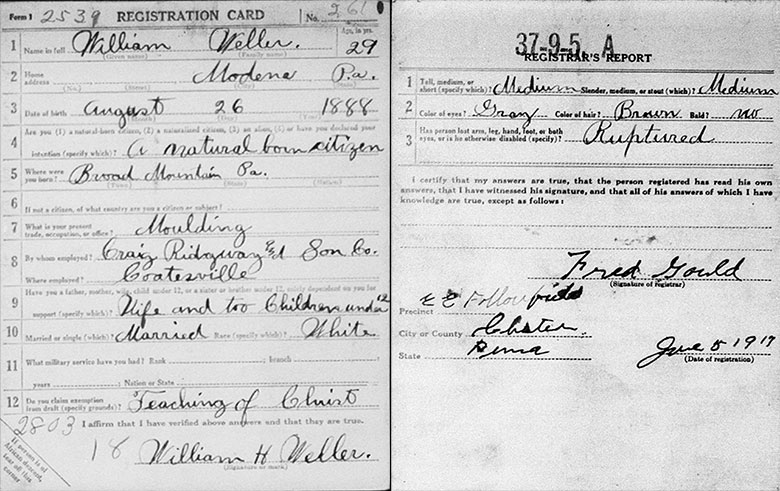 Form 1 2539 REGISTRATION CARD No. 261
1 Name in full William Weller. Age, in yrs. 29
(Given name) (Family name)
2 Home address Modena Pa.
(No.) (Street) (City) (State)
3 Date of birth August 26 1888
(Month) (Day) (Year)
4 Are you (1) a natural-born citizen, (2) a naturalized citizen, (3) an alien, (4) or have you declared your
intention (specify which)? a natural born citizen
5 Where were you born? Broad Mountain Pa.
(Town) (State) (Nation)
6 If not a citizen, of what country are you a citizen or subject?
7 What is your present trade, occupation, or office? Moulding
8 By whom employed? Craig Ridgway & Son Co.
Where employed? Coatesville
9 Have you a father, mother, wife, child under 12, or a sister or brother under 12, solely dependent on you for
support (specify which)? Wife and too Children under 12
10 Married or single (which)? Married Race (specify which)? White
11 What military service have you had? Rank ; branch
years ; Nation or State
12 Do you claim exemption from draft (specify grounds)? Teaching of Christ
2803 I affirm that I have verified above answers and that they are true.
18 William H Weller.
(Signature or mark)
If person is of African descent, tear off this corner
37-9-5 A
REGISTRAR'S REPORT
1 Tall, medium, or short (specify which)? Medium Slender, medium, or stout (which)? Medium
2 Color of eyes? Gray Color of hair? Brown Bald? no
3 Has person lost arm, leg, hand, foot, or both eyes, or is he otherwise disabled (specify)? Ruptured
I certify that my answers are true, that the person registered has read his own
answers, that I have witnessed his signature, and that all of his answers of which I have
knowledge are true, except as follows:
Fred Gould
(Signature of registrar)
Precinct E E Fallowfield
City or County Chester
State Penna June 5 1917
(Date of registration)